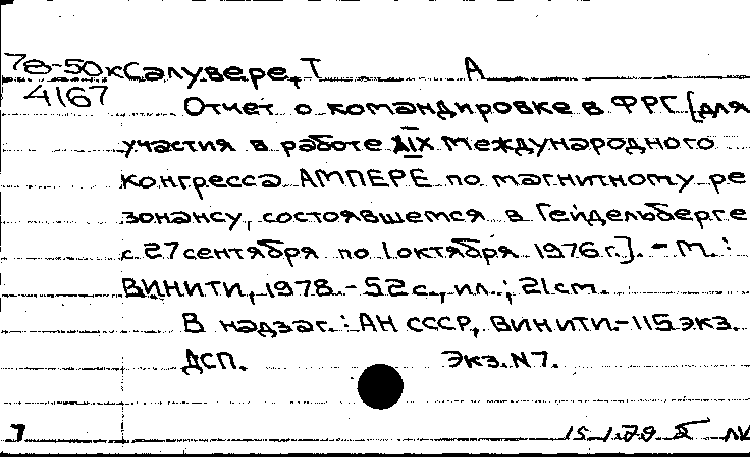 78-50к Салувере, Т А
4167
Отчет о командировке в ФРГ [для
участия в работе XIX Международного
Конгресса АМПЕРЕ по магнитному ре
зонансу, состоявшемся в Гейдельберге
с 27 сентября по 1 октября 1976 г.]. - М.:
ВИНИТИ, 1978. - 52 с., ил.; 21 см.
В надзаг.: АН СССР, ВИНИТИ. - 115 экз.
ДСП. Экз. N 7.
15.1.79